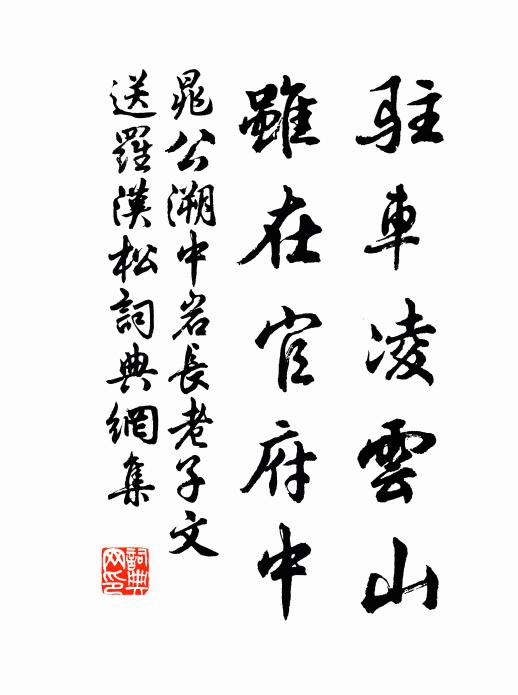 駐車凌雲山
雖在官府中
晁公溯中岩長老子文
送羅漢松詞典網集
詞典网印